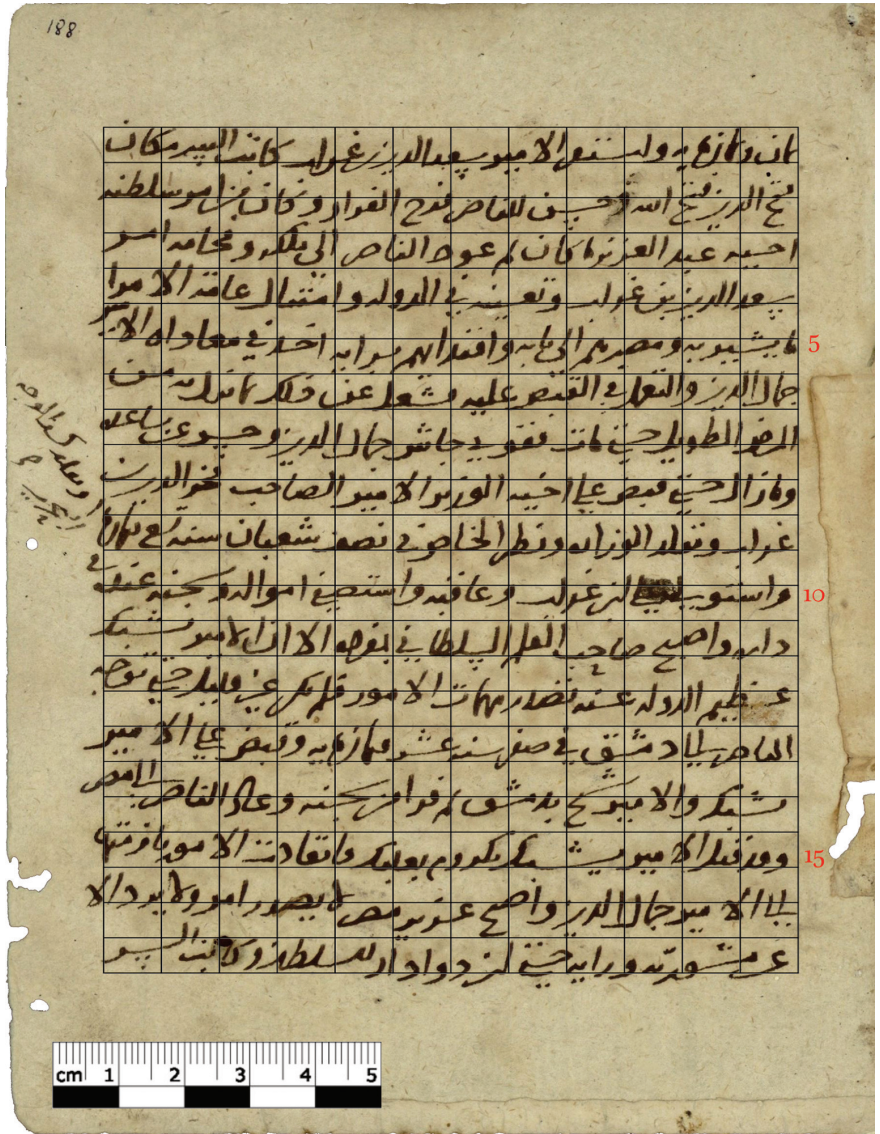 188
ثمان وثمانمايه واستقر الامير سعد الدين بن غراب كاتب السر مكان
فتح الدين فتح الله وحسن للناصر فرح الفرار وكان من امر سلطنه
اخيه عبد العزيز ما كان ثم عود الناصر الى ملكه وفخامه امر
سعد الدين بن غراب وتعينه في الدوله وامتثال عامة الامرا
ما يشير به ومصيرهم الى بابه واقتدايهم برايه اخذ في معاداه الامير
جمال الدين والتقمار في القبض عليه فشغل عن ذلك بما نزل به من
المرض الطويل حتى مات فقوي جاش جمال الدين وحسر عن ساعده
وما زال حتى قبض على اخيه الوزير الامير الصاحب فخر الدين
غراب وتقلد الوزاره ونظر الخاص في نصف شعبان سنه تسع ثمانمايه
واستوسى ابن غراب وعاقبه واستصفى امواله وسجنه عنده في
داره واصبح صاحب القلم السلطاني بمفرده الا ان الامير يشبك
عظيم الدوله عنه تصدر مهمات الامور فلم يكن غير قليل حتى توجه
الناصر الى دمشق في صفر سنه عشر وثمانمايه وقبض على الامير
يشبك والامير شيخ بدمشق ثم فرا من سجنه وعاد الناصر الى مصر
وقد قتل الامير يشبك بعلبك وانقادت الامور بازمتها
الى الامير جمال الدين واصبح عزيز مصر لا يصدر امر ولا يرد الا
عن مشورته ورايه حتى ان دوادار السلطان وكاتب السر
5
10
15
cm 1 2 3 4 5